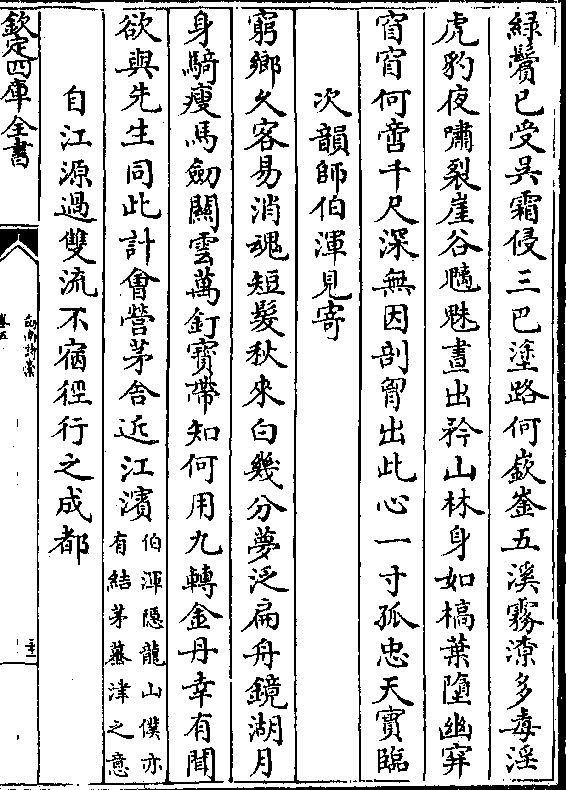 綠鬢已受吳霜侵三巴塗路何嶔崟五溪霧潦多毒淫
虎豹夜嘯裂崖谷魑魅晝出矜山林身如槁葉墮幽穽
窅窅何啻千尺深無因剖胷出此心一寸孤忠天實臨
次韻師伯渾見寄
窮鄉久客易消魂短髮秋來白幾分夢泛扁舟鏡湖月
身騎瘦馬劒關雲萬釘寶帶知何用九轉金丹幸有聞
欲與先生同此計會營茅舍近江濆
伯渾隠龍山僕亦
有結茅蟇津之意
自江源過雙流不宿徑行之成都
欽定四庫全書
劒南詩藁
卷五